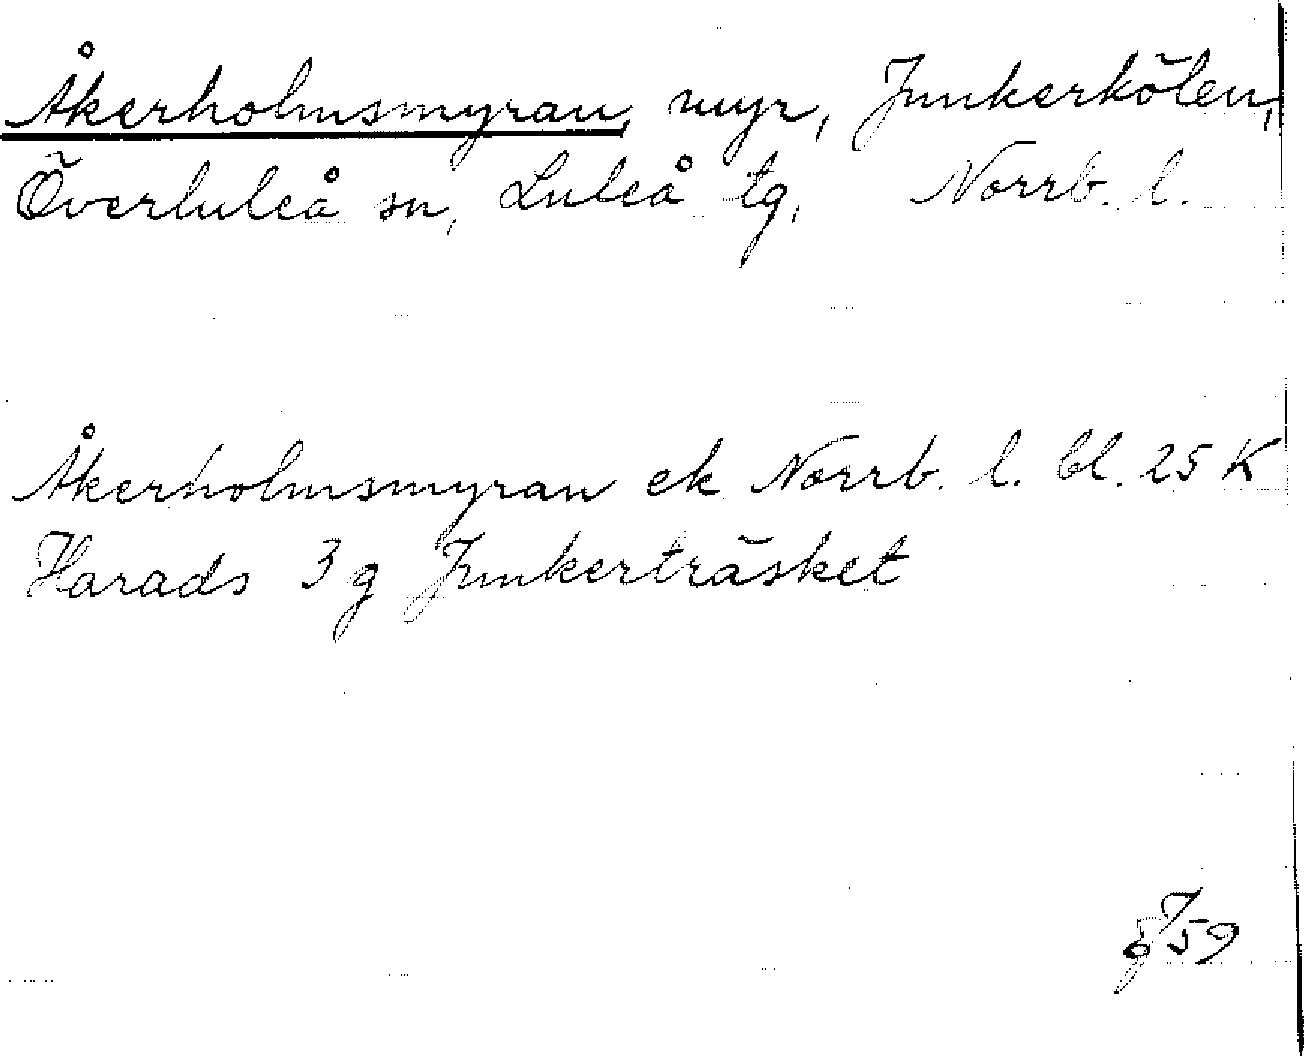 Åkerholmsmyran, myr, Junkerkölen,
Överluleå sn, Luleå tg, Norrb. l.
Åkerholmsmyran ek Norrb. l. bl. 25 K
Harads 3 g Junkerträsket
59